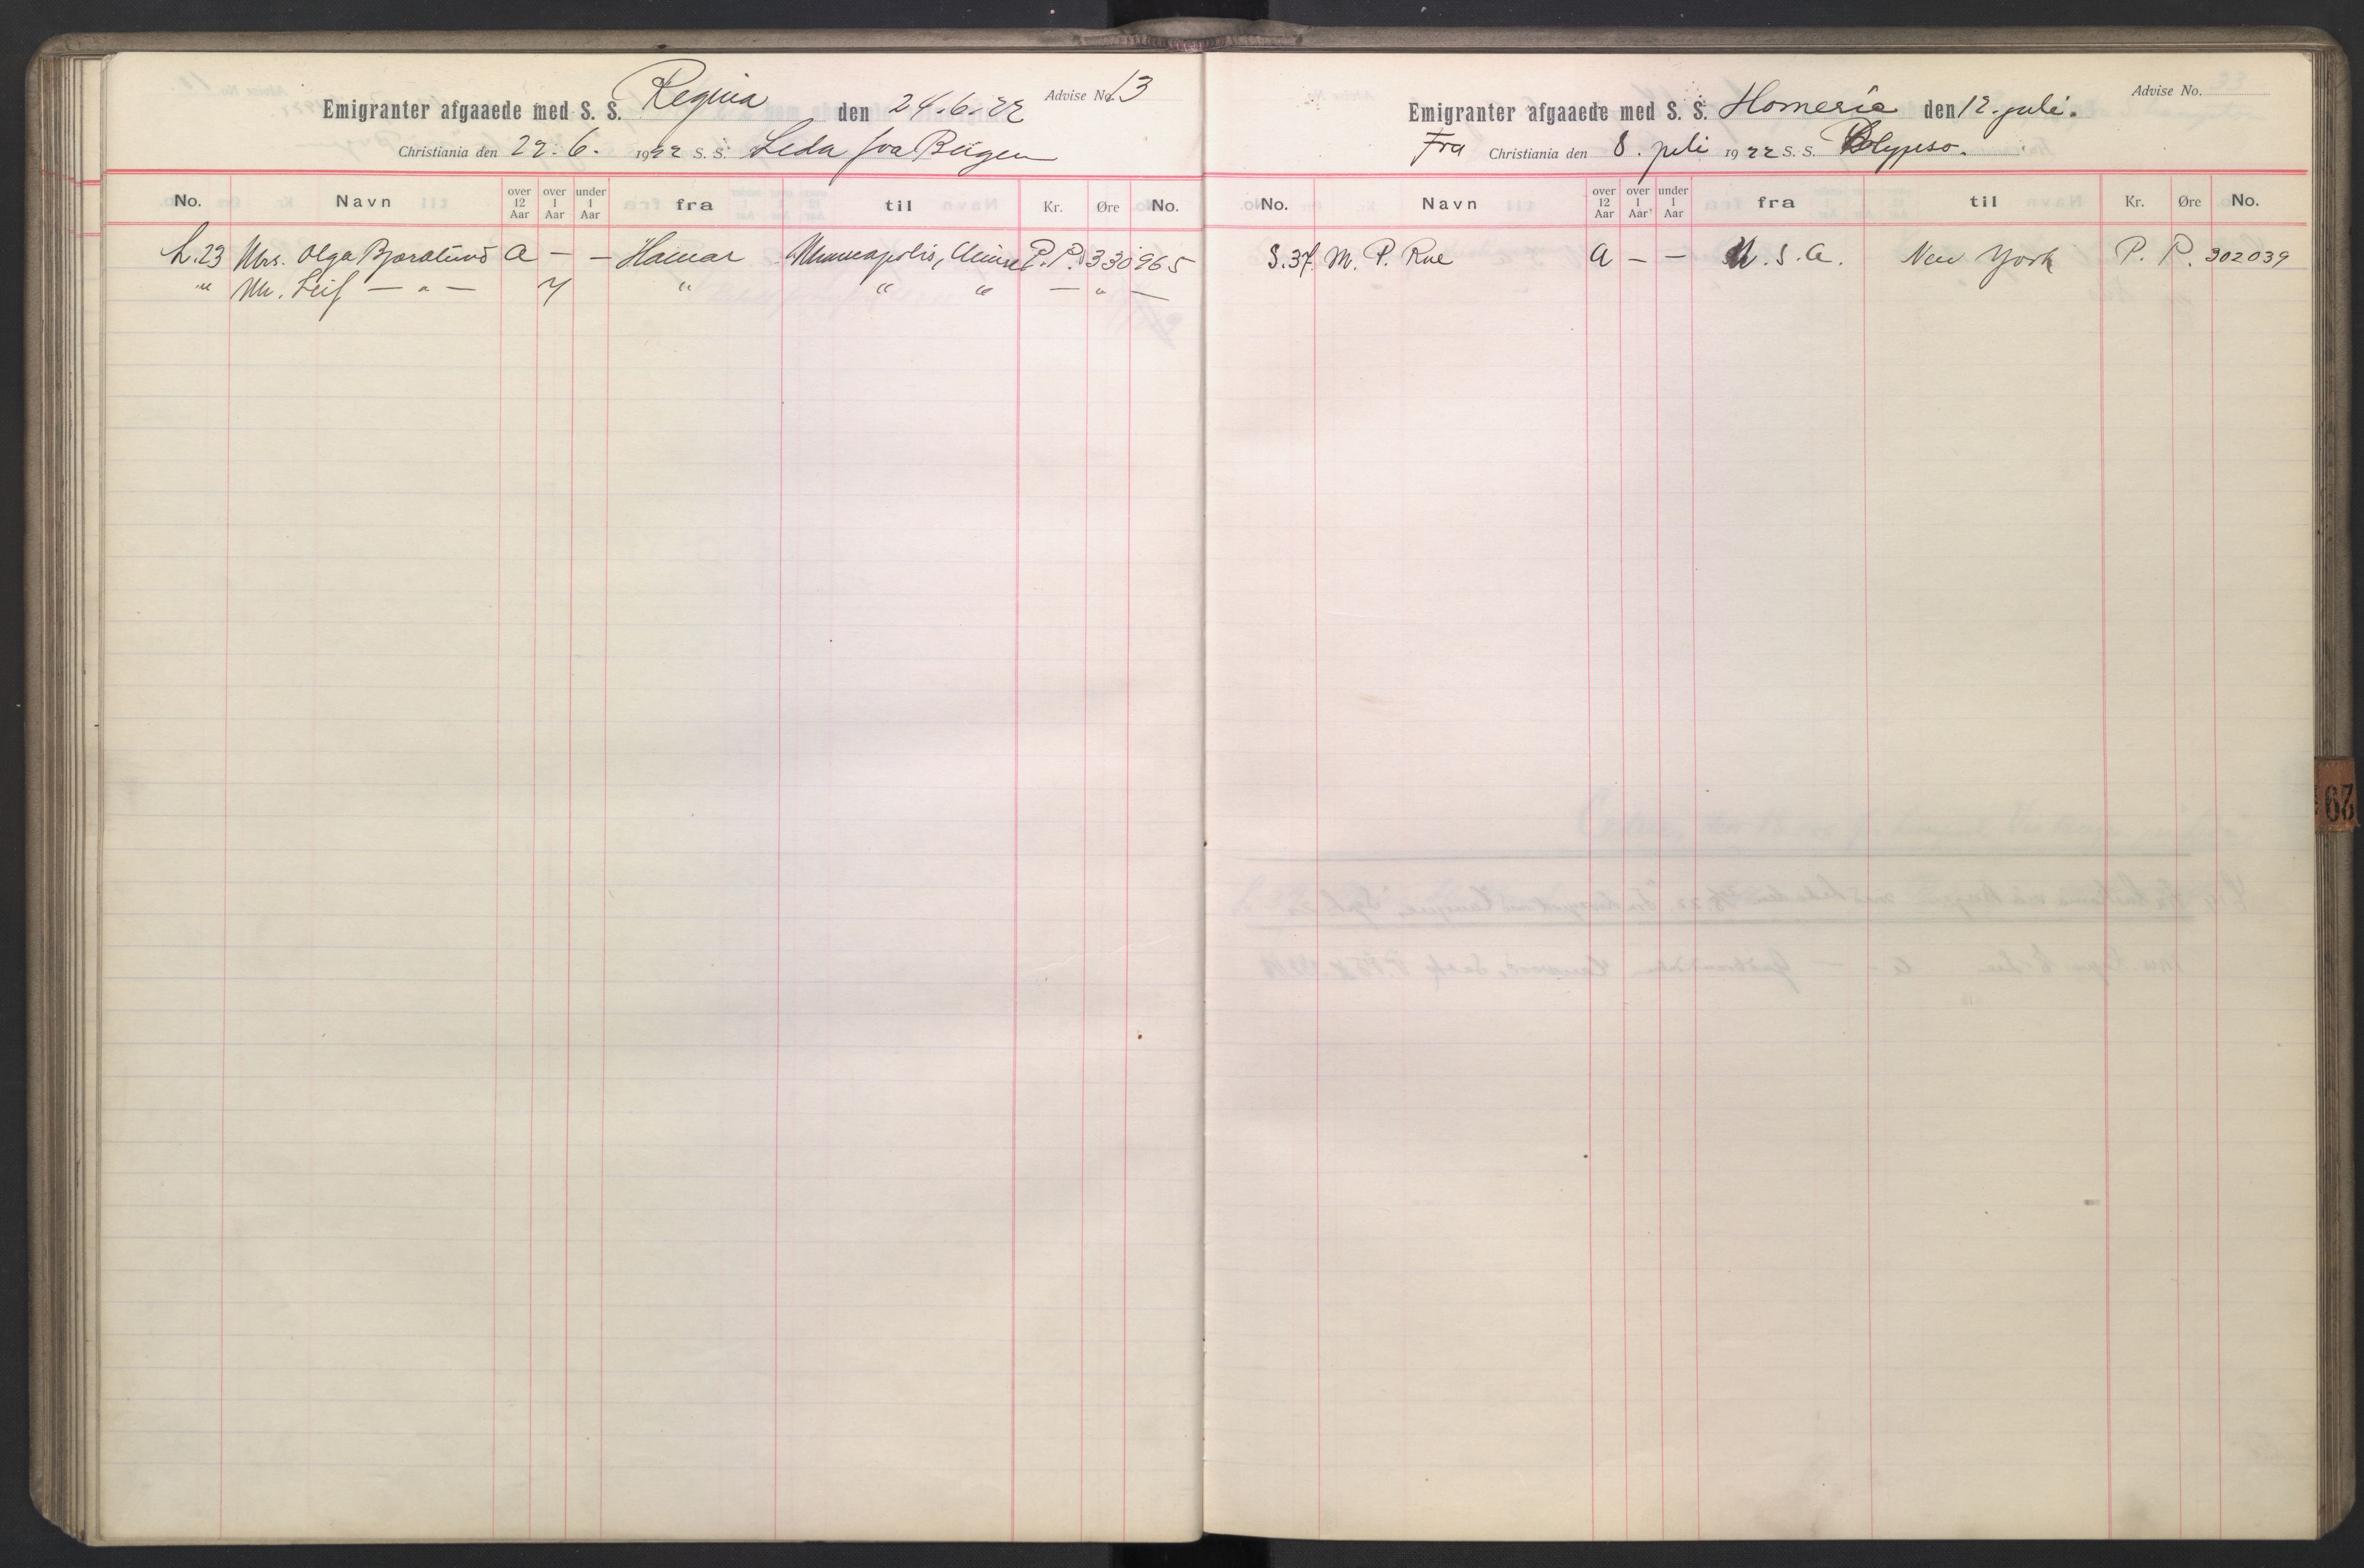 Emigranter afgaaede med S. S. Regina den 24.6.22 Advise No. 13
Christiania den 22.6. 1922 S. S. Leda fra Bergen
No. Navn over 12 Aar over 1 Aar under 1 Aar fra til Kr. Øre No.
L.23 Mrs. Olga Bjoralund a — — Hamar Minneapolis, Minn P.P. 330965
" Mr. Leif — " — 7 " " " — " —
Emigranter afgaaede med S. S. Homeric den 12. juli. Advise No.
Fra Christiania den 8. juli 1922 S. S. Calypso.
No. Navn over 12 Aar over 1 Aar under 1 Aar fra til Kr. Øre No.
S.37. M. P. Rue a — — U.S.A. New York P. P. 302039
29